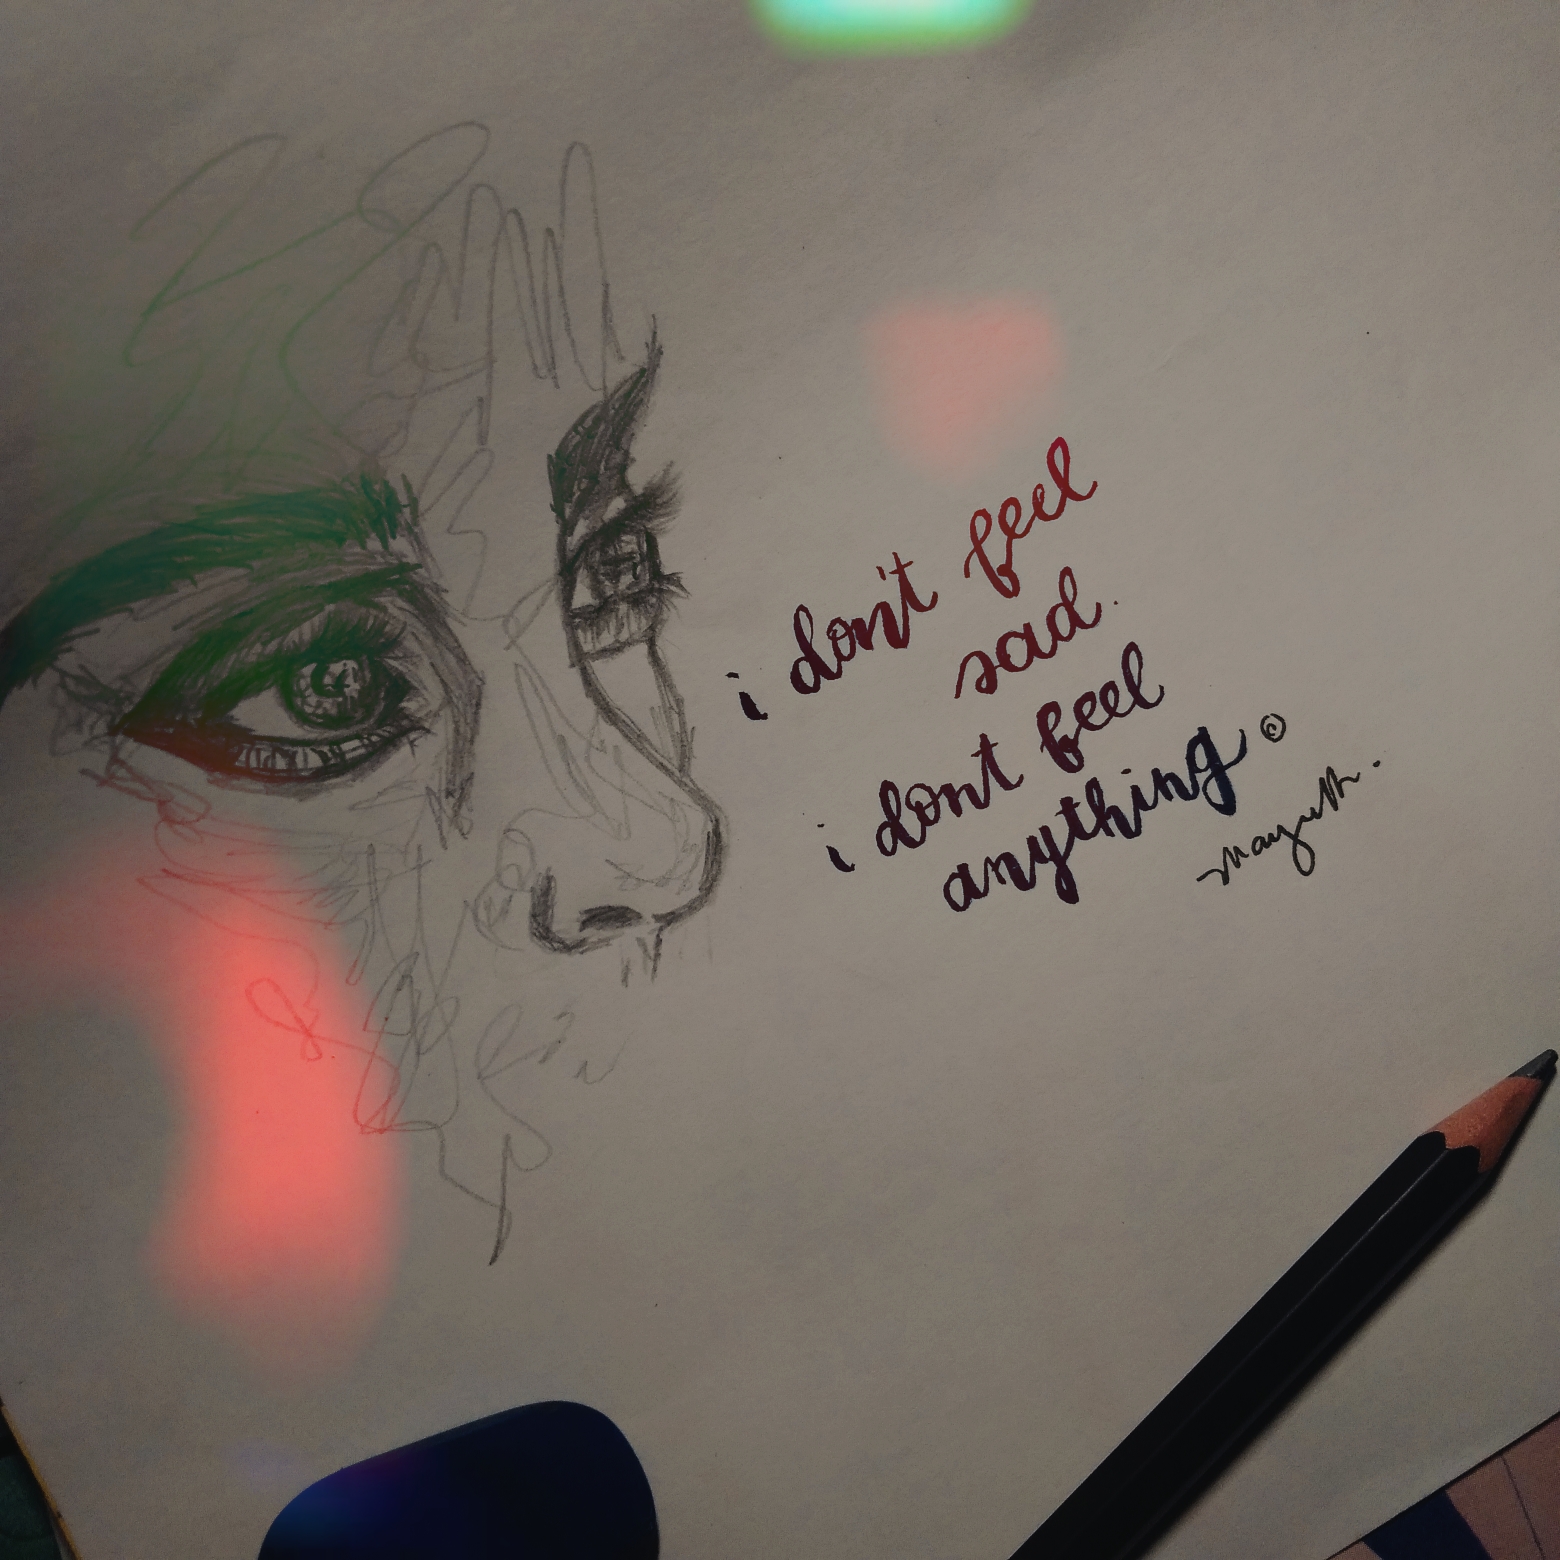 i don't feel
sad.
i dont feel
anything ©